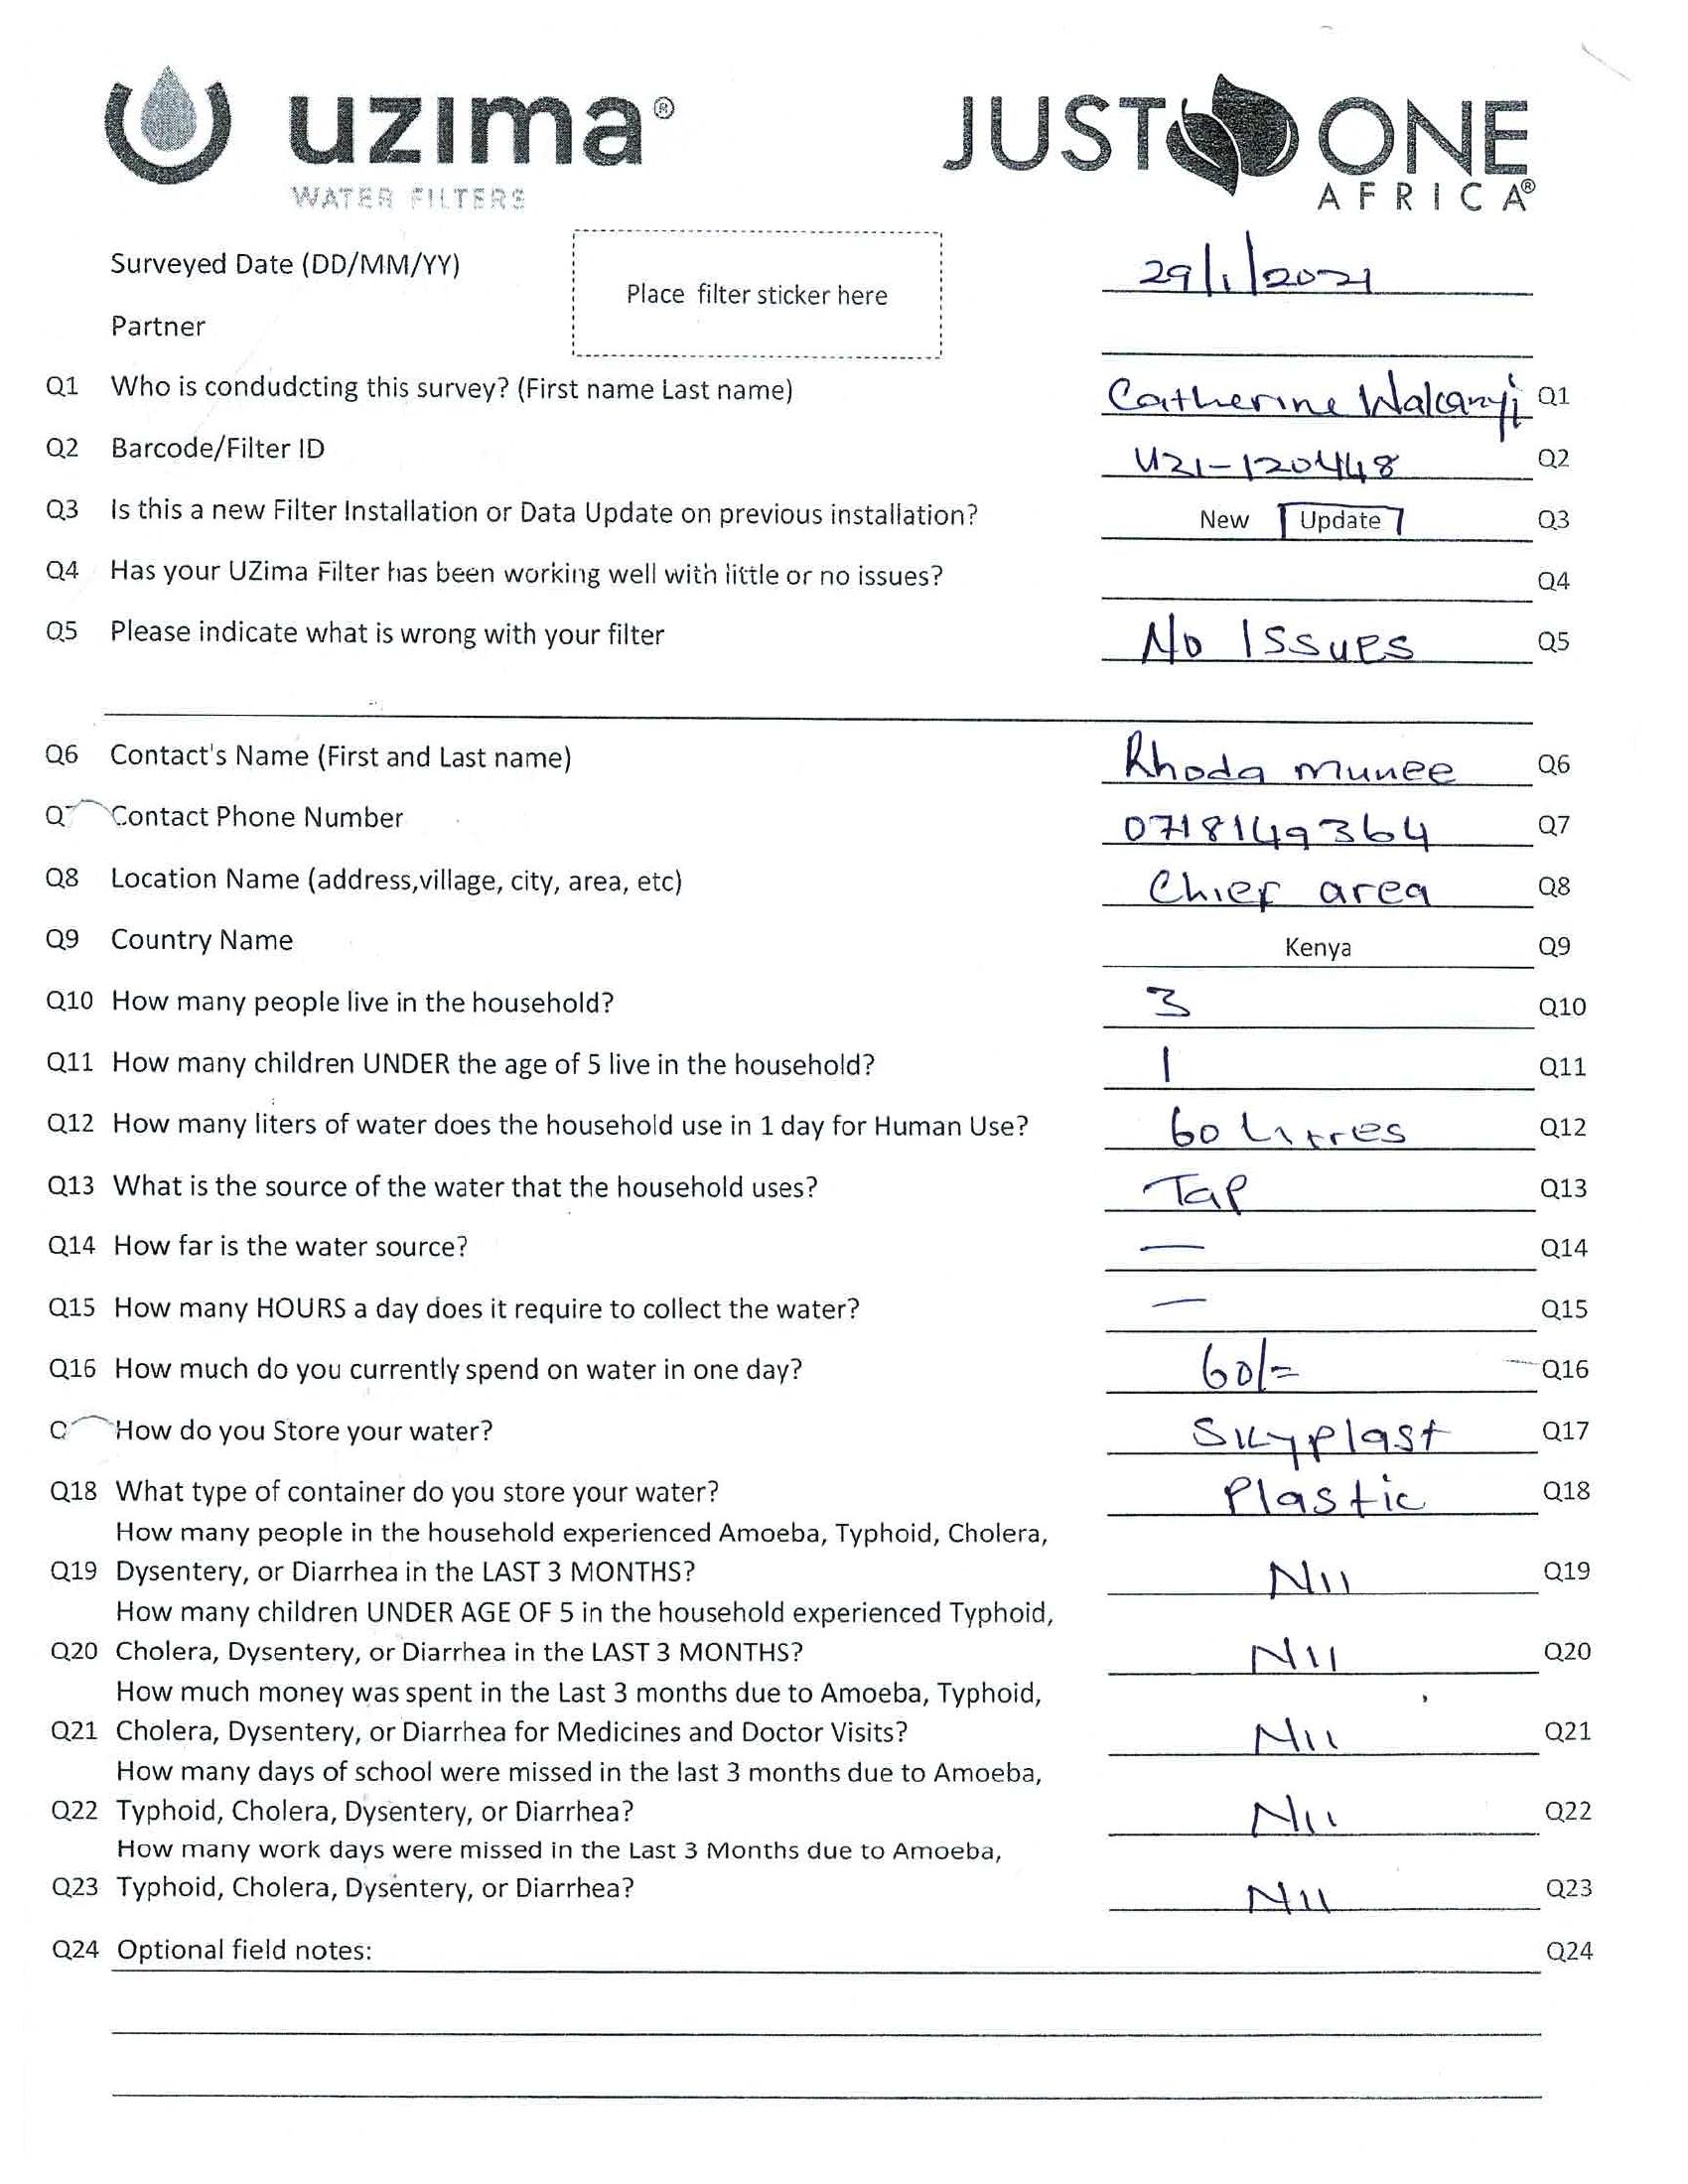 uzima®
WATER FILTERS
JUST ONE
AFRICA®
Surveyed Date (DD/MM/YY) 29/1/2021
Place filter sticker here
Partner
Q1 Who is condudcting this survey? (First name Last name) Catherine Wakanyi Q1
Q2 Barcode/Filter ID UZI-120448 Q2
Q3 Is this a new Filter Installation or Data Update on previous installation? New Update Q3
Q4 Has your UZima Filter has been working well with little or no issues? Q4
Q5 Please indicate what is wrong with your filter No Issues Q5
Q6 Contact's Name (First and Last name) Rhoda munee Q6
Q7 Contact Phone Number 0718149364 Q7
Q8 Location Name (address,village, city, area, etc) Chief area Q8
Q9 Country Name Kenya Q9
Q10 How many people live in the household? 3 Q10
Q11 How many children UNDER the age of 5 live in the household? 1 Q11
Q12 How many liters of water does the household use in 1 day for Human Use? 60 Litres Q12
Q13 What is the source of the water that the household uses? Tap Q13
Q14 How far is the water source? — Q14
Q15 How many HOURS a day does it require to collect the water? — Q15
Q16 How much do you currently spend on water in one day? 60/= Q16
Q How do you Store your water? Skyplast Q17
Q18 What type of container do you store your water? Plastic Q18
How many people in the household experienced Amoeba, Typhoid, Cholera,
Q19 Dysentery, or Diarrhea in the LAST 3 MONTHS? Nil Q19
How many children UNDER AGE OF 5 in the household experienced Typhoid,
Q20 Cholera, Dysentery, or Diarrhea in the LAST 3 MONTHS? Nil Q20
How much money was spent in the Last 3 months due to Amoeba, Typhoid,
Q21 Cholera, Dysentery, or Diarrhea for Medicines and Doctor Visits? Nil Q21
How many days of school were missed in the last 3 months due to Amoeba,
Q22 Typhoid, Cholera, Dysentery, or Diarrhea? Nil Q22
How many work days were missed in the Last 3 Months due to Amoeba,
Q23 Typhoid, Cholera, Dysentery, or Diarrhea? Nil Q23
Q24 Optional field notes: Q24